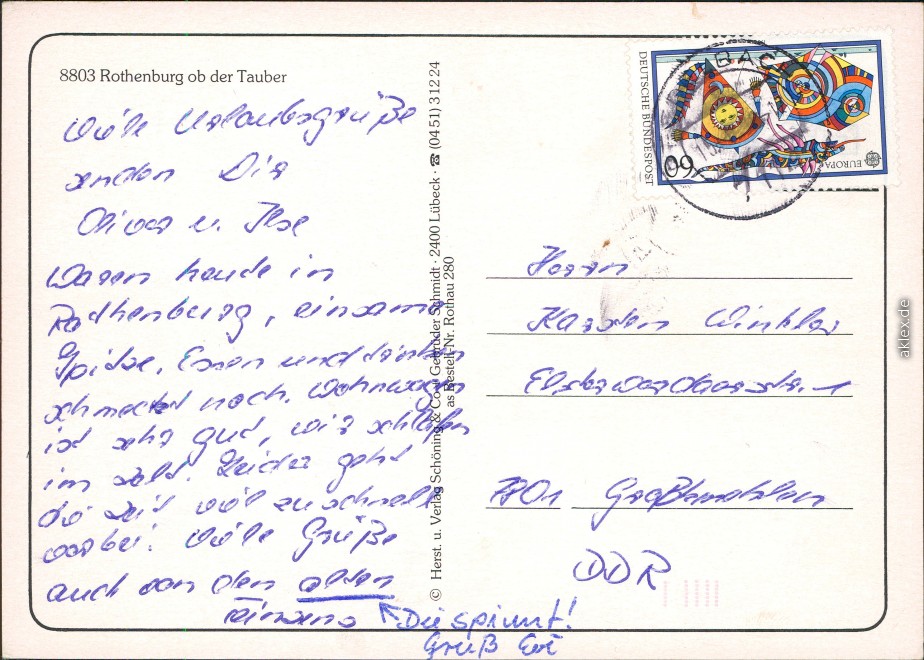 8803 Rothenburg ob der Tauber
Viele Urlaubsgrüße
senden Dir
Oliver u. Ilse
Waren heude in
Rothenburg, einsame
Spitze. Essen und trinken
schmecket noch. Wohnwagen
ist sehr gut, wir schlafen
im Zelt. Leider geht
die Zeit viel zu schnell
vorbei. Viele Grüße
auch von den alten
Die spinnt!
Gruß
© Herst. u. Verlag Schöning & Co + Gebrüder Schmidt · 2400 Lübeck · ☎ (0451) 31224
as Bestell-Nr. Rothau 280
DEUTSCHE BUNDESPOST
60
EUROPA
BACH
Herrn
Karsten Winkler
Elsterwerdaerstr. 1
7701 Großkmehlen
DDR
aklex.de